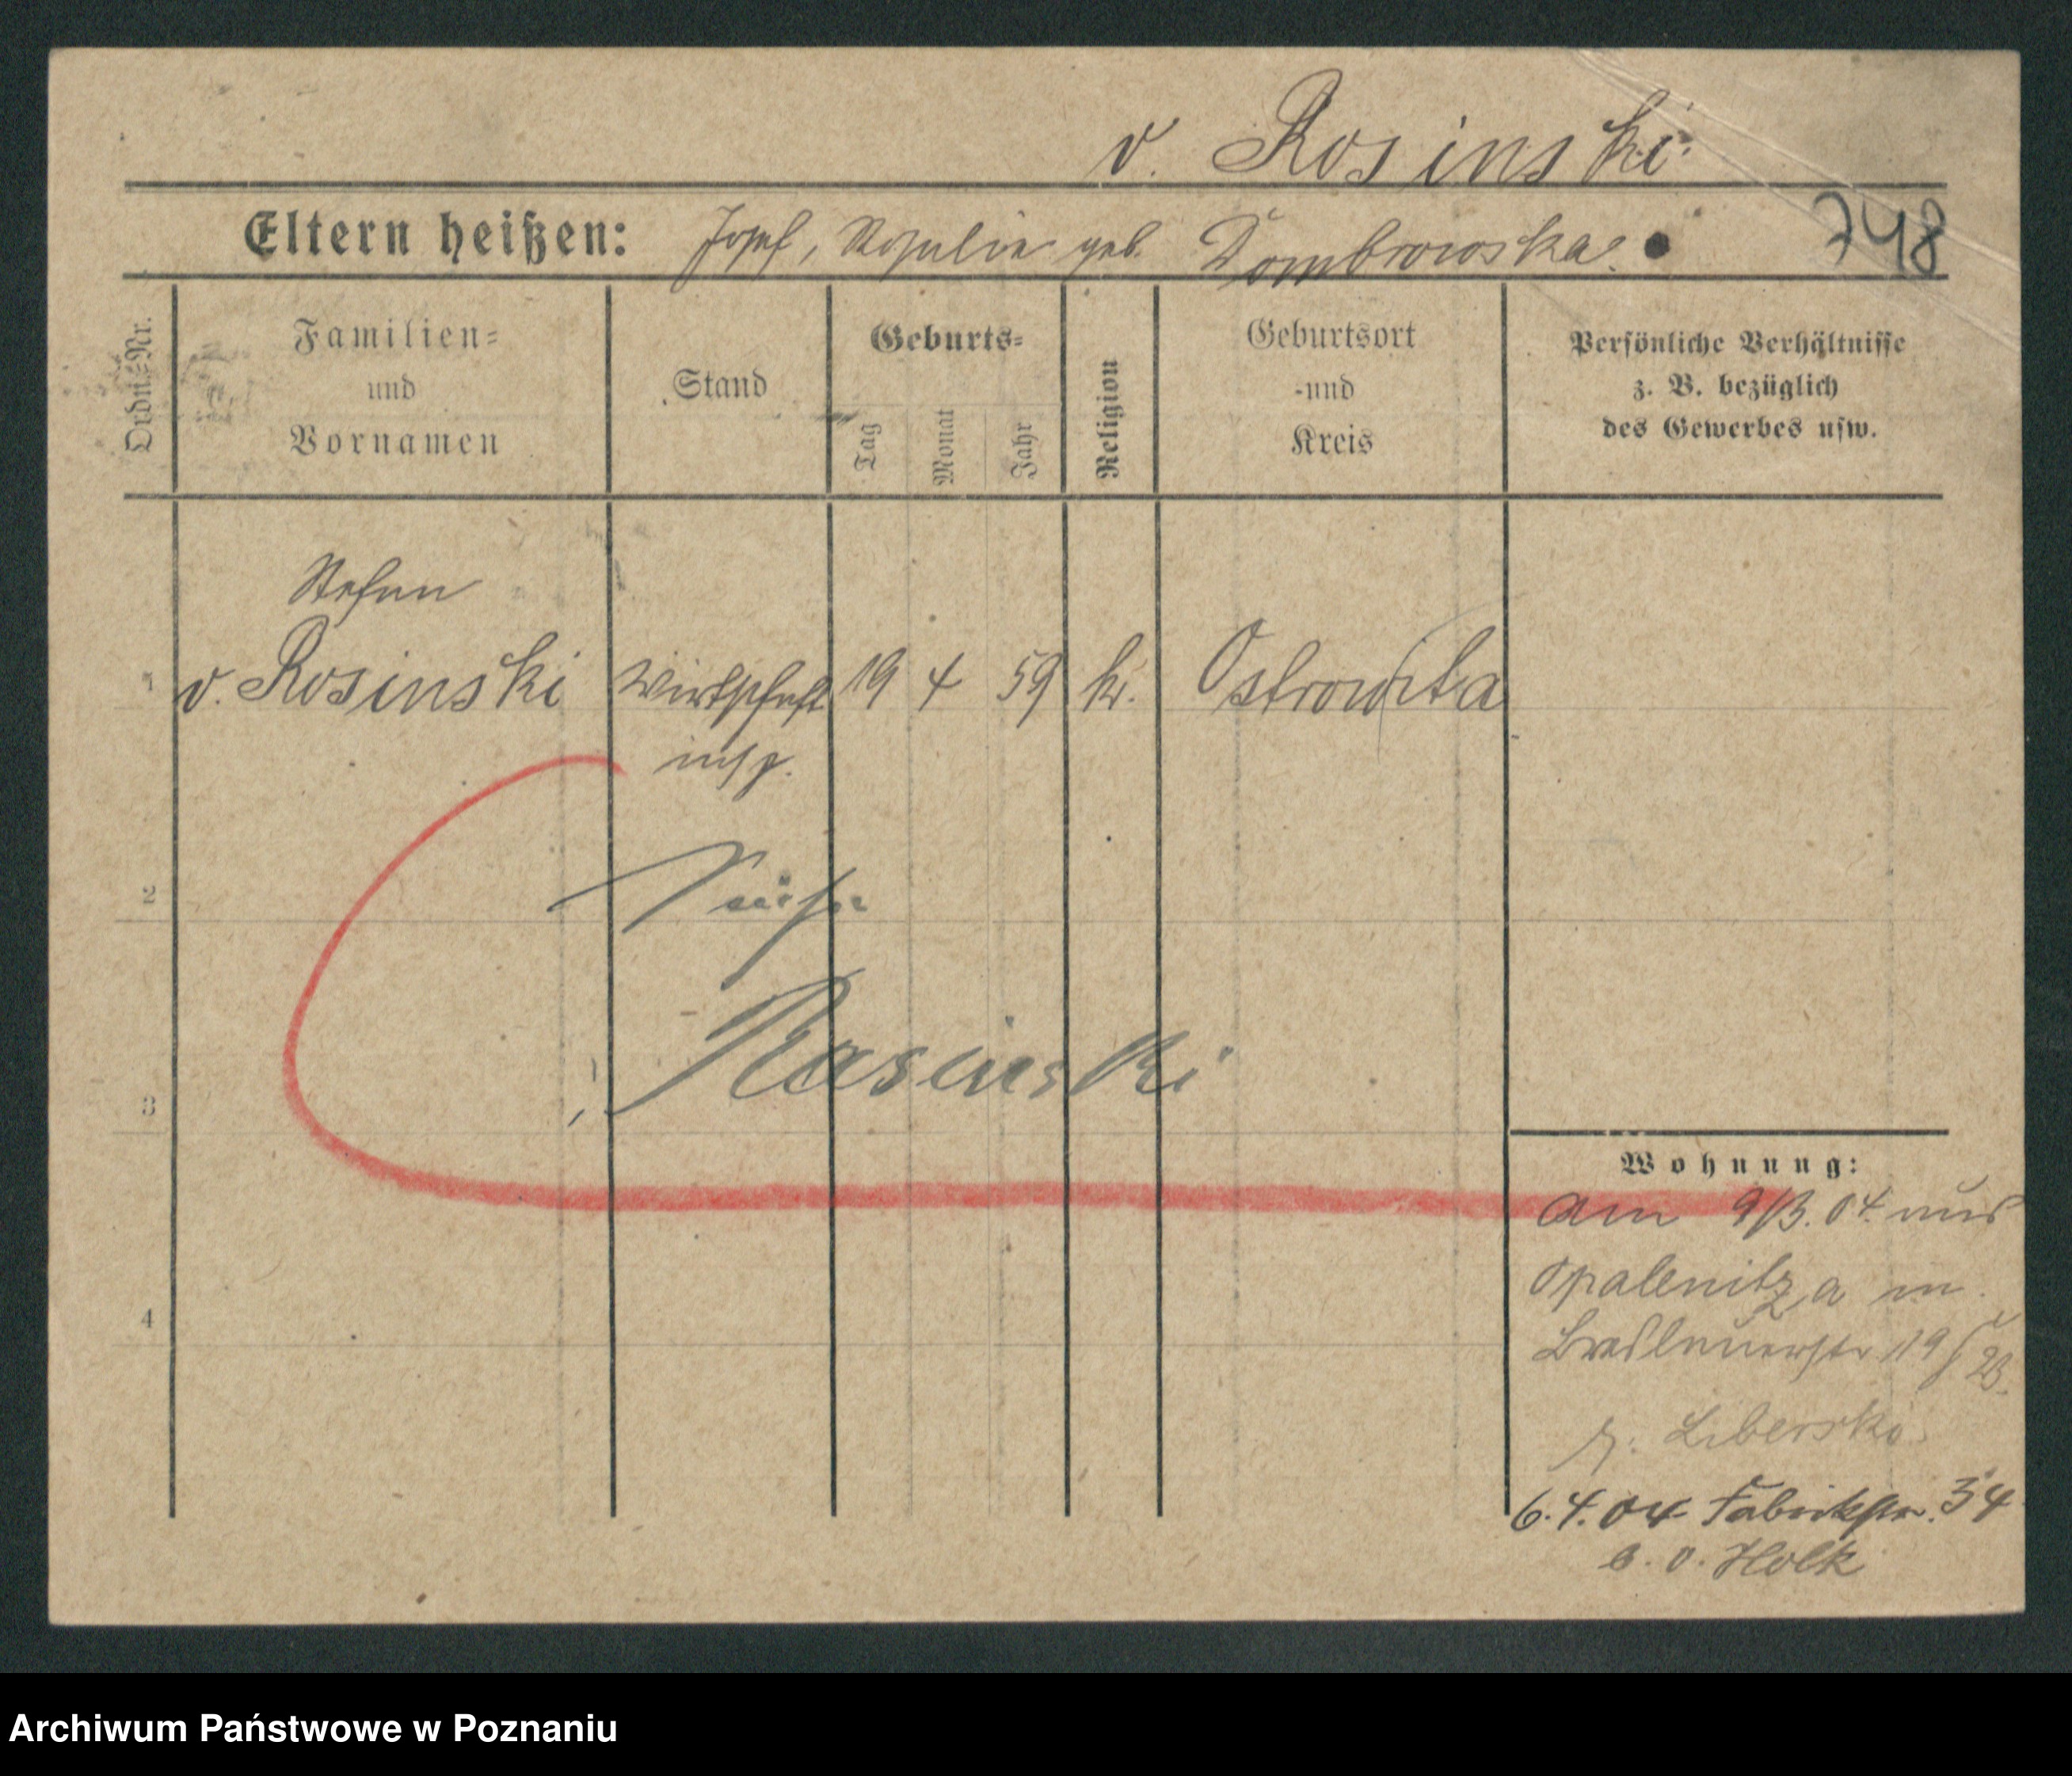 v. Rosinski
Eltern heißen: Josef, Rosalie geb. Dombrowska.
748
Ordn.=Nr.
Familien=
und
Vornamen
Stand
Geburts=
Tag
Monat
Jahr
Religion
Geburtsort
und
Kreis
Persönliche Verhältnisse
z. B. bezüglich
des Gewerbes usw.
Stefan
1 v. Rosinski Wirtschaft 19 4 59 k. Ostrowita
insp.
2 Siehe
Rasinski
3
Wohnung:
am 9/3. 04. aus
Opalenitza in
4
Breslauerstr 19/
Liberski
6. 4. 04 Fabrikstr. 34
b. v. Holk
Archiwum Państwowe w Poznaniu